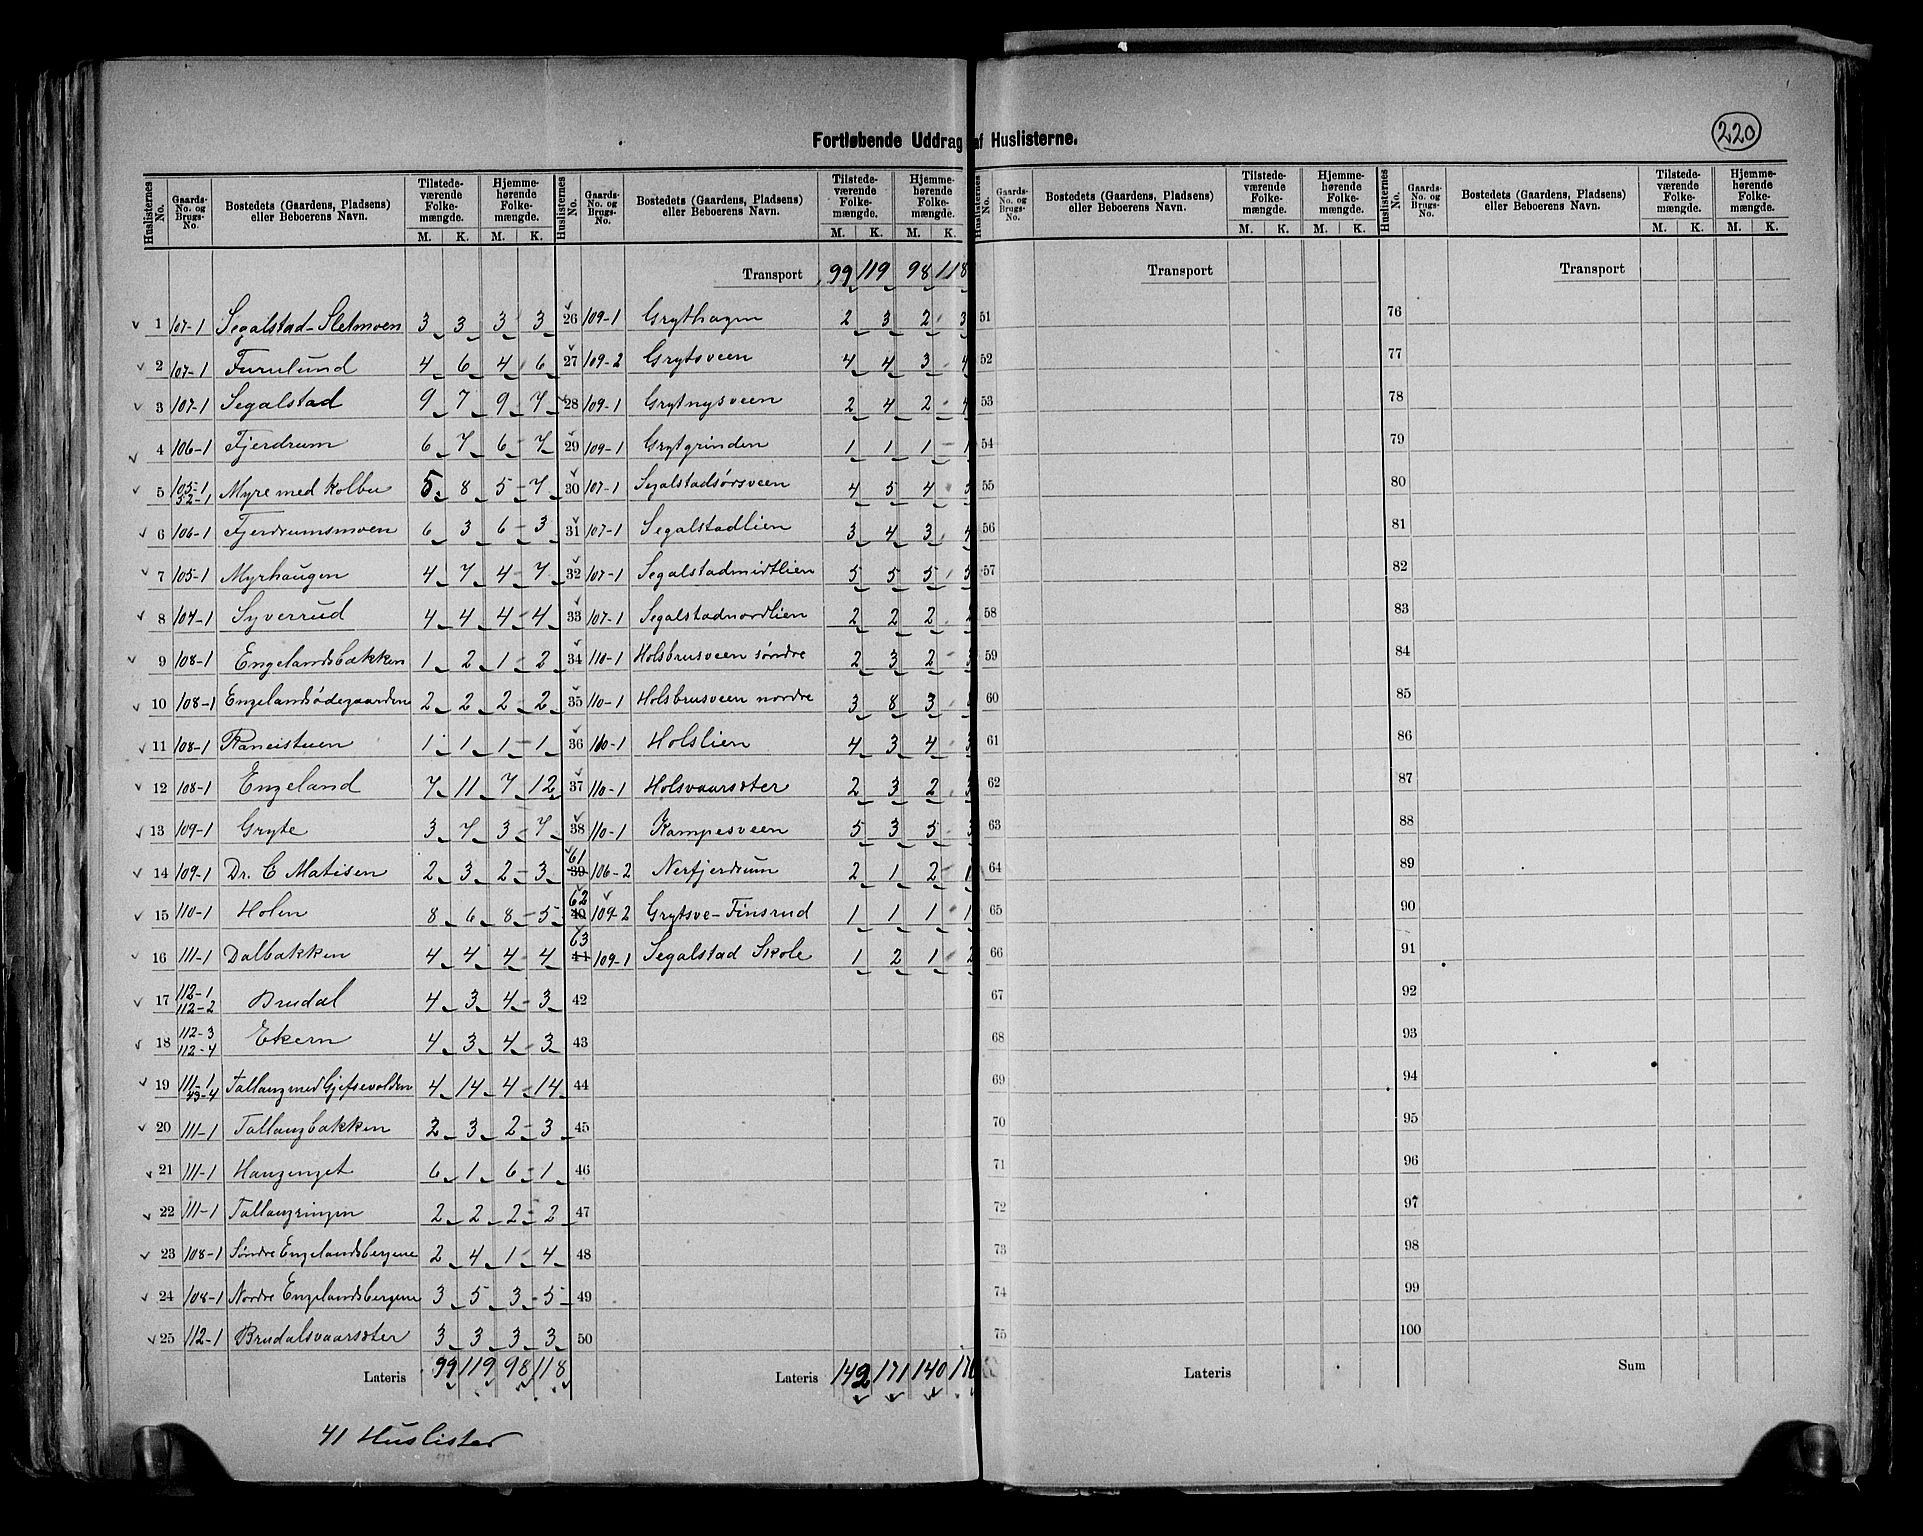 Fortløbende Uddrag af Huslisterne.
220
Huslisternes No. Gaards- No. og Brugs- No. Bostedets (Gaardens, Pladsens) eller Beboerens Navn. Tilstede- værende Folke- mængde. Hjemme- hørende Folke- mængde. M. K. M. K.
1 107-1 Segalstad-Sletmoen 3 3 3 3
2 107-1 Furulund 4 6 4 6
3 107-1 Segalstad 9 7 9 7
4 106-1 Fjerdrum 6 7 6 7
5 105-1 52-1 Myre med Kolbu 5 8 5 7
6 106-1 Fjerdrumsmoen 6 3 6 3
7 105-1 Myrhaugen 4 7 4 7
8 104-1 Syverrud 4 4 4 4
9 108-1 Engelandsbakken 1 2 1 2
10 108-1 Engelandsødegaarden 2 2 2 2
11 108-1 1 1 1 1
12 108-1 Engeland 7 11 7 12
13 109-1 Gryte 3 7 3 7
14 109-1 Dr. C Matisen 2 3 2 3
15 110-1 Holen 8 6 8 5
16 111-1 Dalbakken 4 4 4 4
17 112-1 112-2 Brudal 4 3 4 3
18 112-3 112-4 Ekern 4 3 4 3
19 111-1 43-4 Tallaug med Gjefsevolden 4 14 4 14
20 111-1 Tallaugbakken 2 3 2 3
21 111-1 Haugenget 6 1 6 1
22 111-1 Tallaugringen 2 2 2 2
23 108-1 Søndre Engelandsbergene 2 4 1 4
24 108-1 Nordre Engelandsbergene 3 5 3 5
25 112-1 Brudalsvaarsæter 3 3 3 3
Lateris 99 119 98 118
41 Huslister
Huslisternes No. Gaards- No. og Brugs- No. Bostedets (Gaardens, Pladsens) eller Beboerens Navn. Tilstede- værende Folke- mængde. Hjemme- hørende Folke- mængde. M. K. M. K.
Transport 99 119 98 118
26 109-1 Grythagen 2 3 2 3
27 109-2 Grytsveen 4 4 3 4
28 109-1 Grytnysveen 2 4 2 4
29 109-1 Grytgrinden 1 1 1 1
30 107-1 Segalstadsørsveen 4 5 4
31 107-1 Segalstadlien 3 4 3 4
32 107-1 Segalstadmidtlien 5 5 5 5
33 107-1 Segalstadnordlien 2 2 2 2
34 110-1 Holsbrusveen søndre 2 3 2 3
35 110-1 Holsbrusveen nordre 3 8 3
36 110-1 Holslien 4 3 4 3
37 110-1 Holsvaarsæter 2 3 2 3
38 110-1 Kampesveen 5 3 5 3
61 39 106-2 Nerfjerdrum 2 1 2 1
62 40 109-2 Grytsve-Finsrud 1 1 1 1
63 41 109-1 Segalstad Skole 1 2 1 2
42
43
44
45
46
47
48
49
50
Lateris 142 171 140 170
Huslisternes No. Gaards- No. og Brugs- No. Bostedets (Gaardens, Pladsens) eller Beboerens Navn. Tilstede- værende Folke- mængde. Hjemme- hørende Folke- mængde. M. K. M. K.
Transport
51
52
53
54
55
56
57
58
59
60
61
62
63
64
65
66
67
68
69
70
71
72
73
74
75
Lateris
Huslisternes No. Gaards- No. og Brugs- No. Bostedets (Gaardens, Pladsens) eller Beboerens Navn. Tilstede- værende Folke- mængde. Hjemme- hørende Folke- mængde. M. K. M. K.
Transport
76
77
78
79
80
81
82
83
84
85
86
87
88
89
90
91
92
93
94
95
96
97
98
99
100
Sum